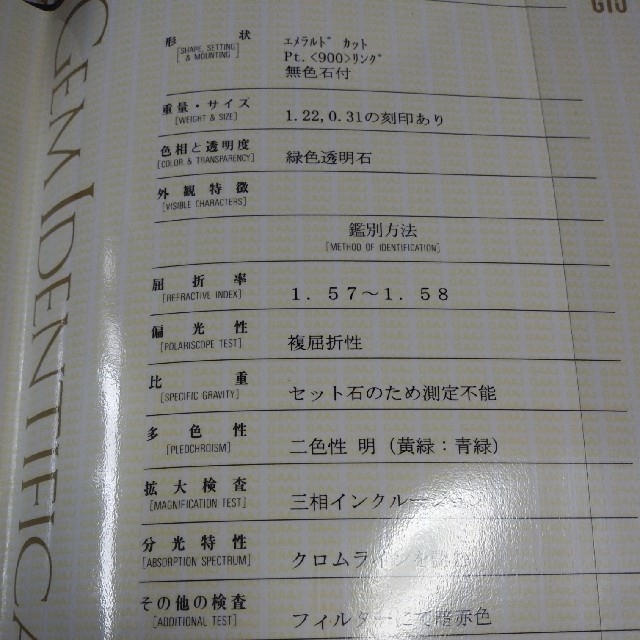 GEM IDENTIFICA
形状
[SHAPE, SETTING
& MOUNTING]
エメラルド カット
Pt.<900>リング
無色石付
重量・サイズ
[WEIGHT & SIZE]
1.22,0.31の刻印あり
色相と透明度
[COLOR & TRANSPARENCY]
緑色透明石
外観特徴
[VISIBLE CHARACTERS]
鑑別方法
[METHOD OF IDENTIFICATION]
屈折率
[REFRACTIVE INDEX]
1.57～1.58
偏光性
[POLARISCOPE TEST]
複屈折性
比重
[SPECIFIC GRAVITY]
セット石のため測定不能
多色性
[PLEOCHROISM]
二色性 明 (黄緑:青緑)
拡大検査
[MAGNIFICATION TEST]
三相インクルー
分光特性
[ABSORPTION SPECTRUM]
クロムラインを
その他の検査
[ADDITIONAL TEST]
フィルターにて暗赤色